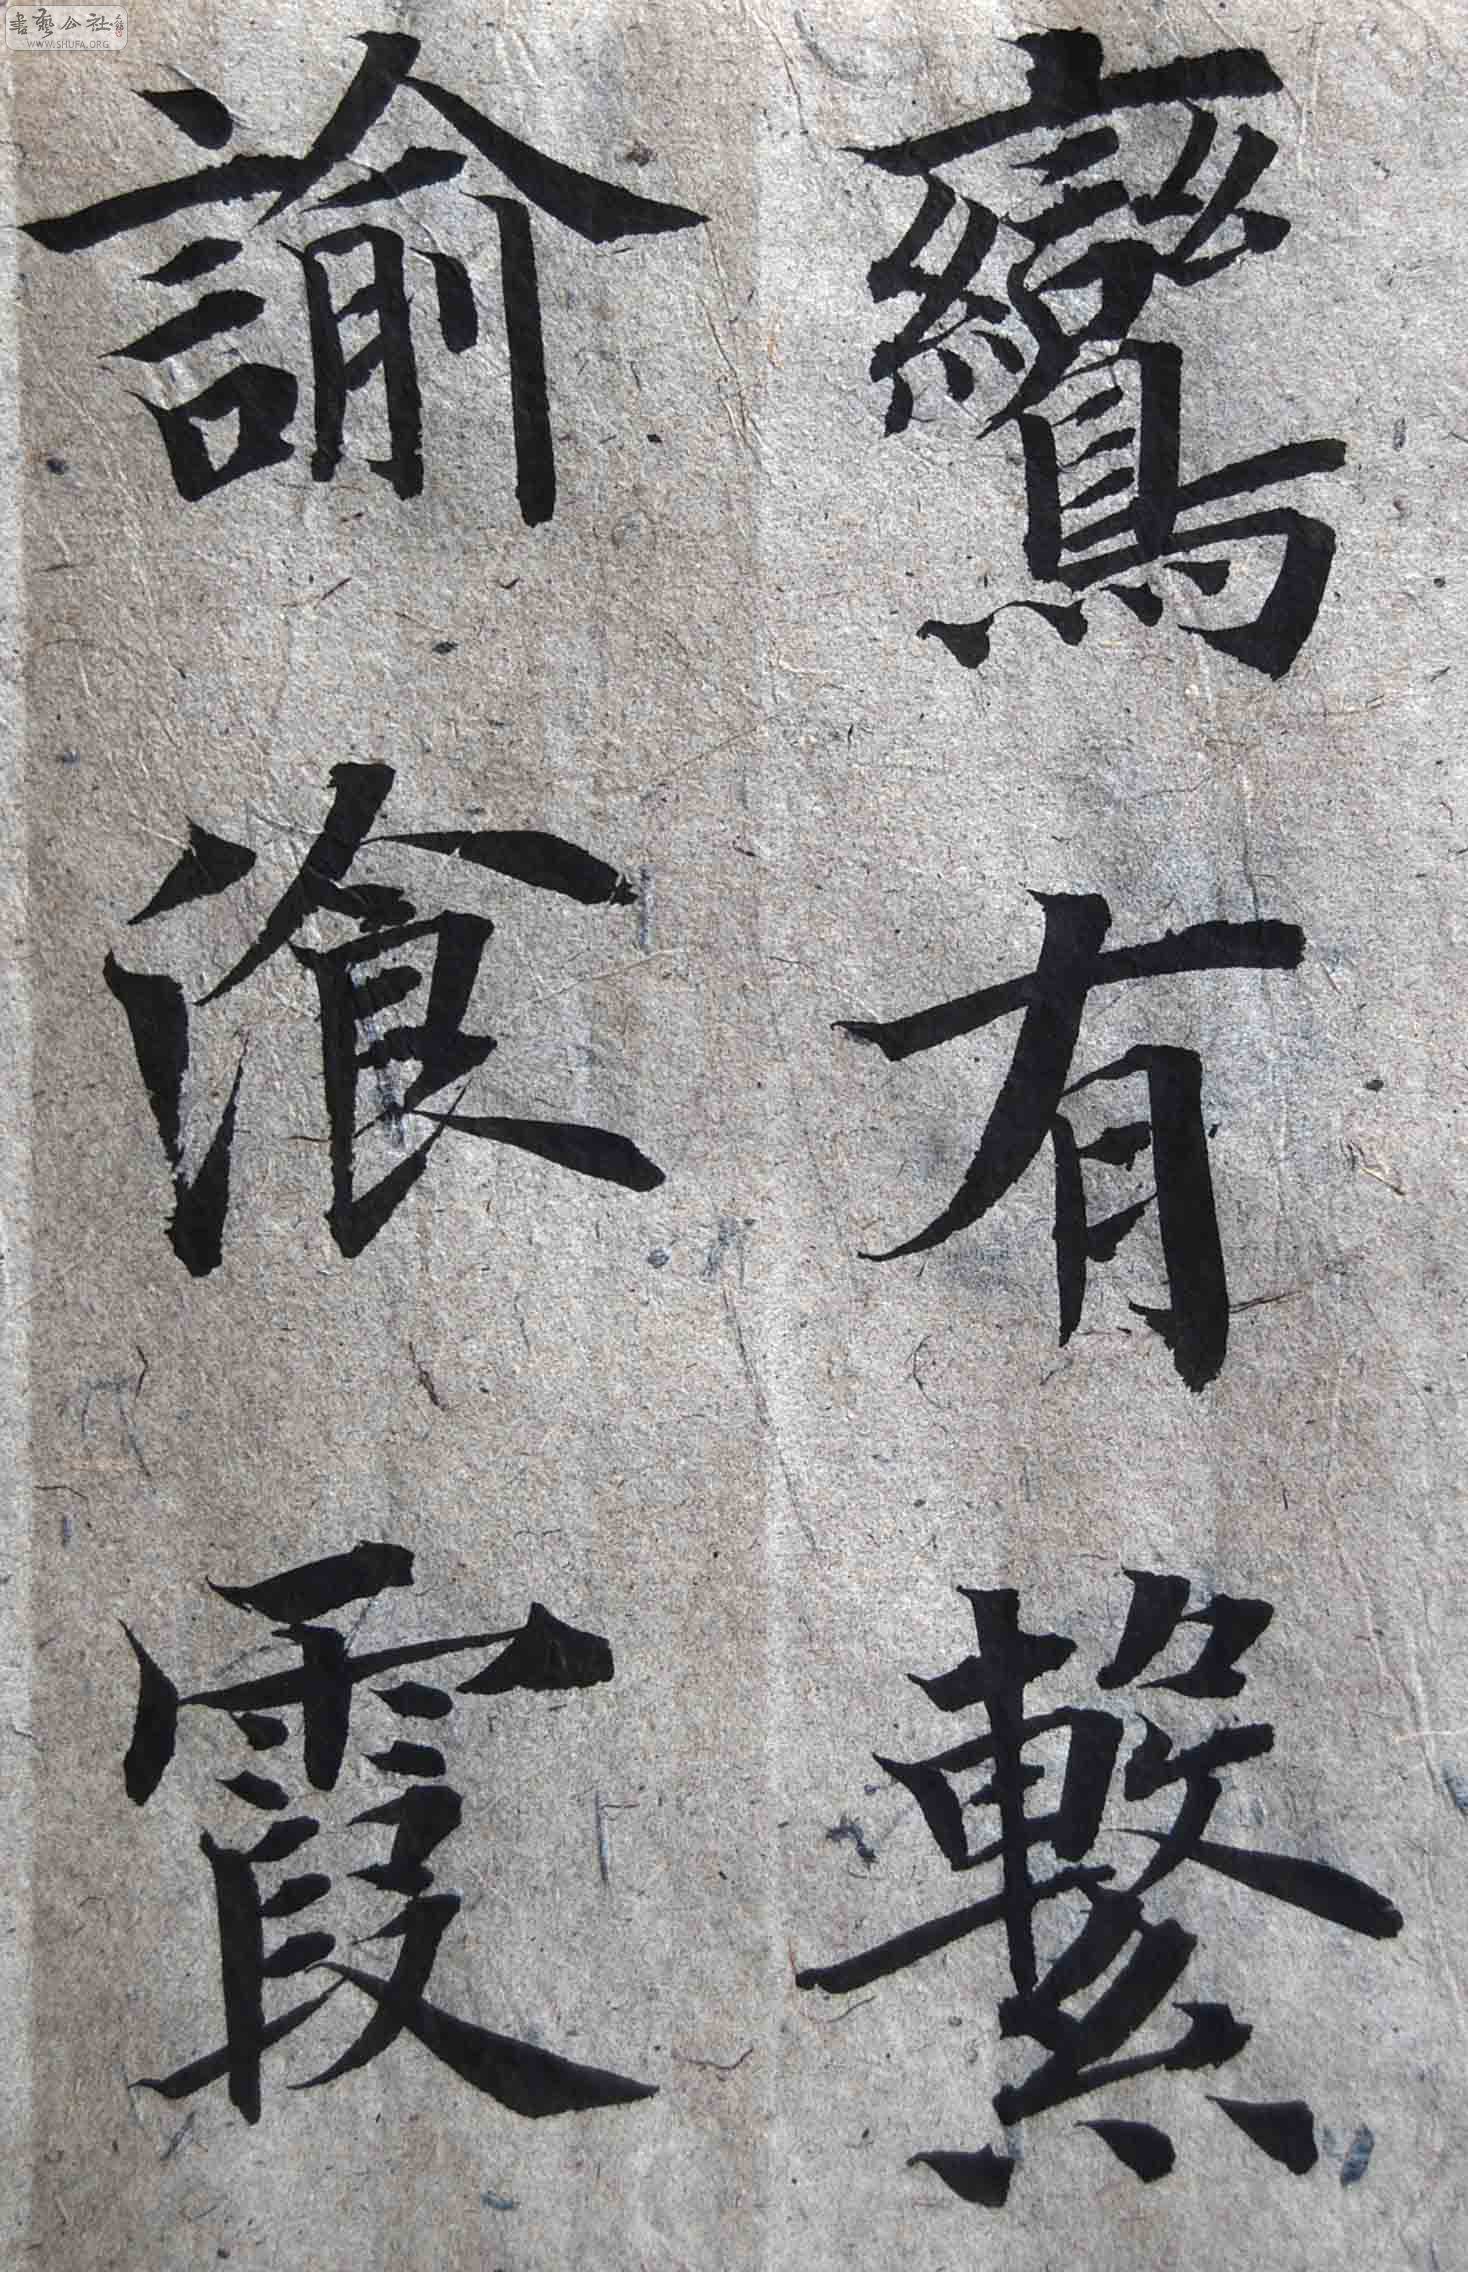 鸞有繫
諭飡霞
書藝公社
WWW.SHUFA.ORG